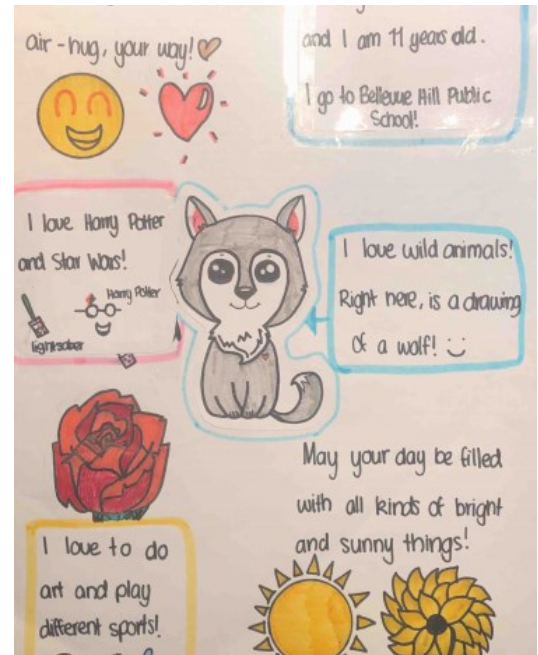 air-hug, your way!
and I am 11 years old.
I go to Bellevue Hill Public
School!
I love Harry Potter
and Star Wars!
Harry Potter
lightsaber
I love wild animals!
Right here, is a drawing
of a wolf!
May your day be filled
with all kinds of bright
and sunny things!
I love to do
art and play
different sports!